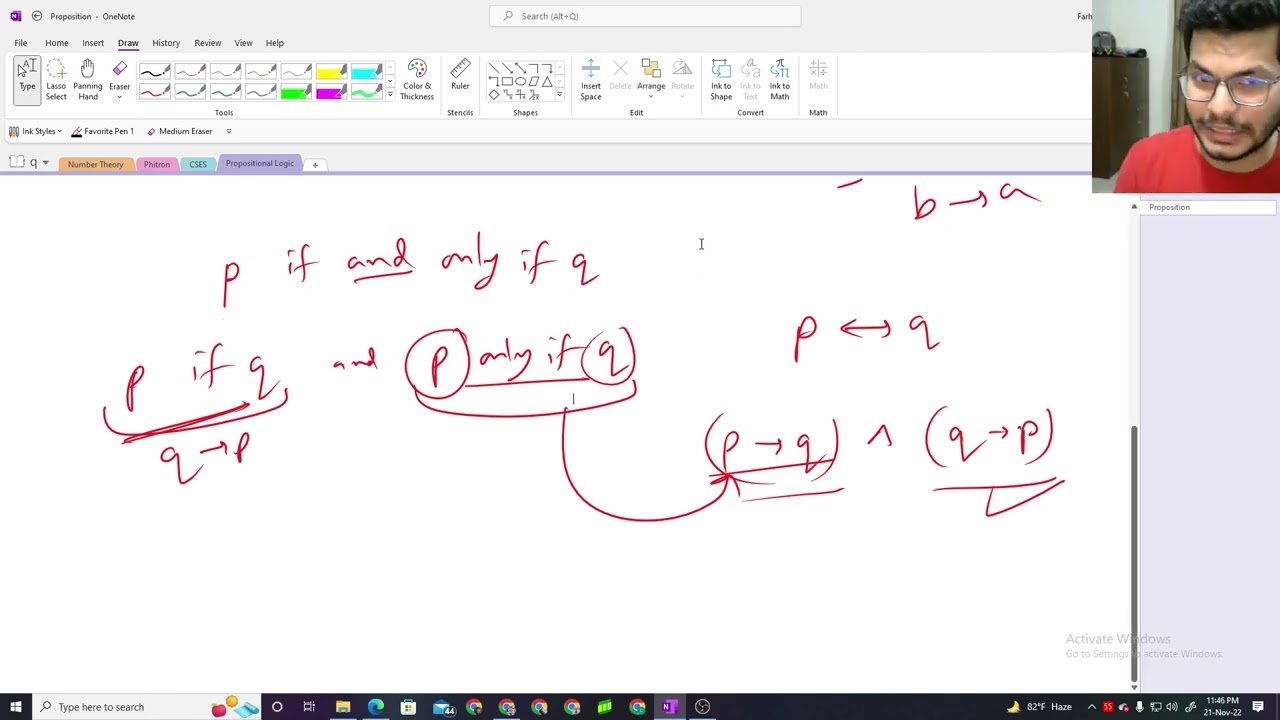 Proposition - OneNote
Search (Alt+Q)
Farh
File Home Insert Draw History Review View Help
Type
Lasso Select
Panning Hand
Eraser
Color & Thickness
Ruler
Insert Space
Delete
Arrange
Rotate
Ink to Shape
Ink to Text
Ink to Math
Math
Tools Stencils Shapes Edit Convert Math
Ink Styles Favorite Pen 1 Medium Eraser
q Number Theory Phitron CSES Propositional Logic +
Proposition
b → a
p if and only if q
p ↔ q
p if q and p only if q
q → p
(p → q) ∧ (q → p)
Activate Windows
Go to Settings to activate Windows.
Type here to search
44
82°F Haze
55
11:46 PM
21-Nov-22